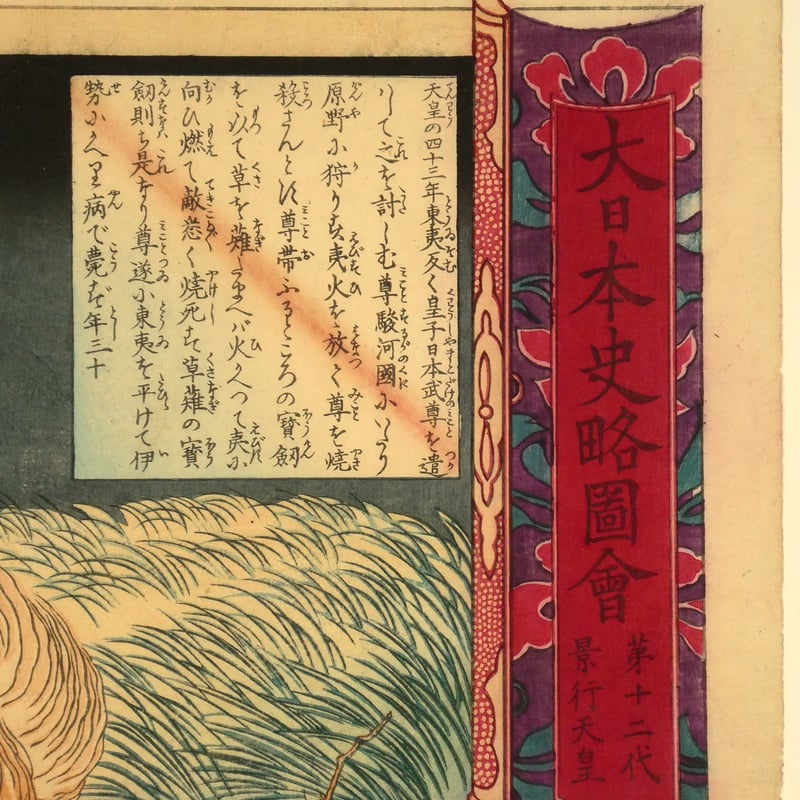 大日本史略圖會
第十二代
景行天皇
天皇の四十三年東夷反く皇子日本武尊を遣
りて之を討しむ尊駿河國にいたり
原野に狩す夷火を放て尊を焼
殺さんとす尊帯ふるところの寶劔
を以て草を薙たまへバ火かへつて夷に
向ひ燃て敵悉く焼死す草薙の寶
劔則ち是なり尊遂に東夷を平けて伊
勢にかへり病で薨ず年三十